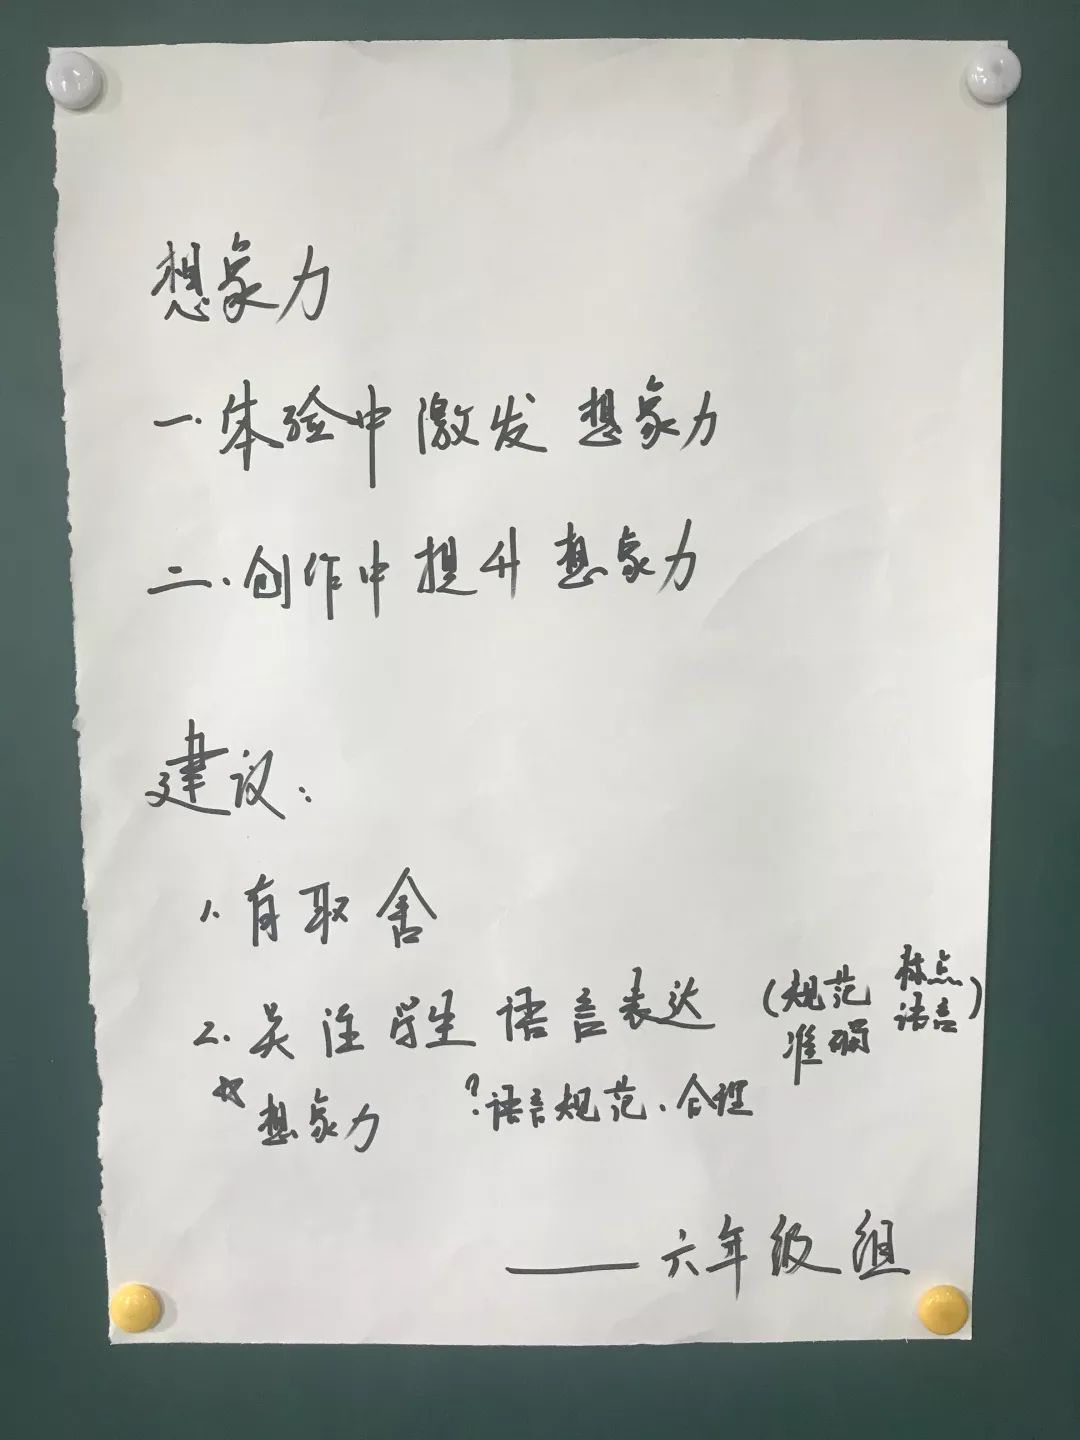 想象力
一.体验中激发想象力
二.创作中提升想象力
建议:
1.有取舍
2.关注学生语言表达(规范 标点
准确 语言)
☆想象力 ?语言规范、合理
——六年级组